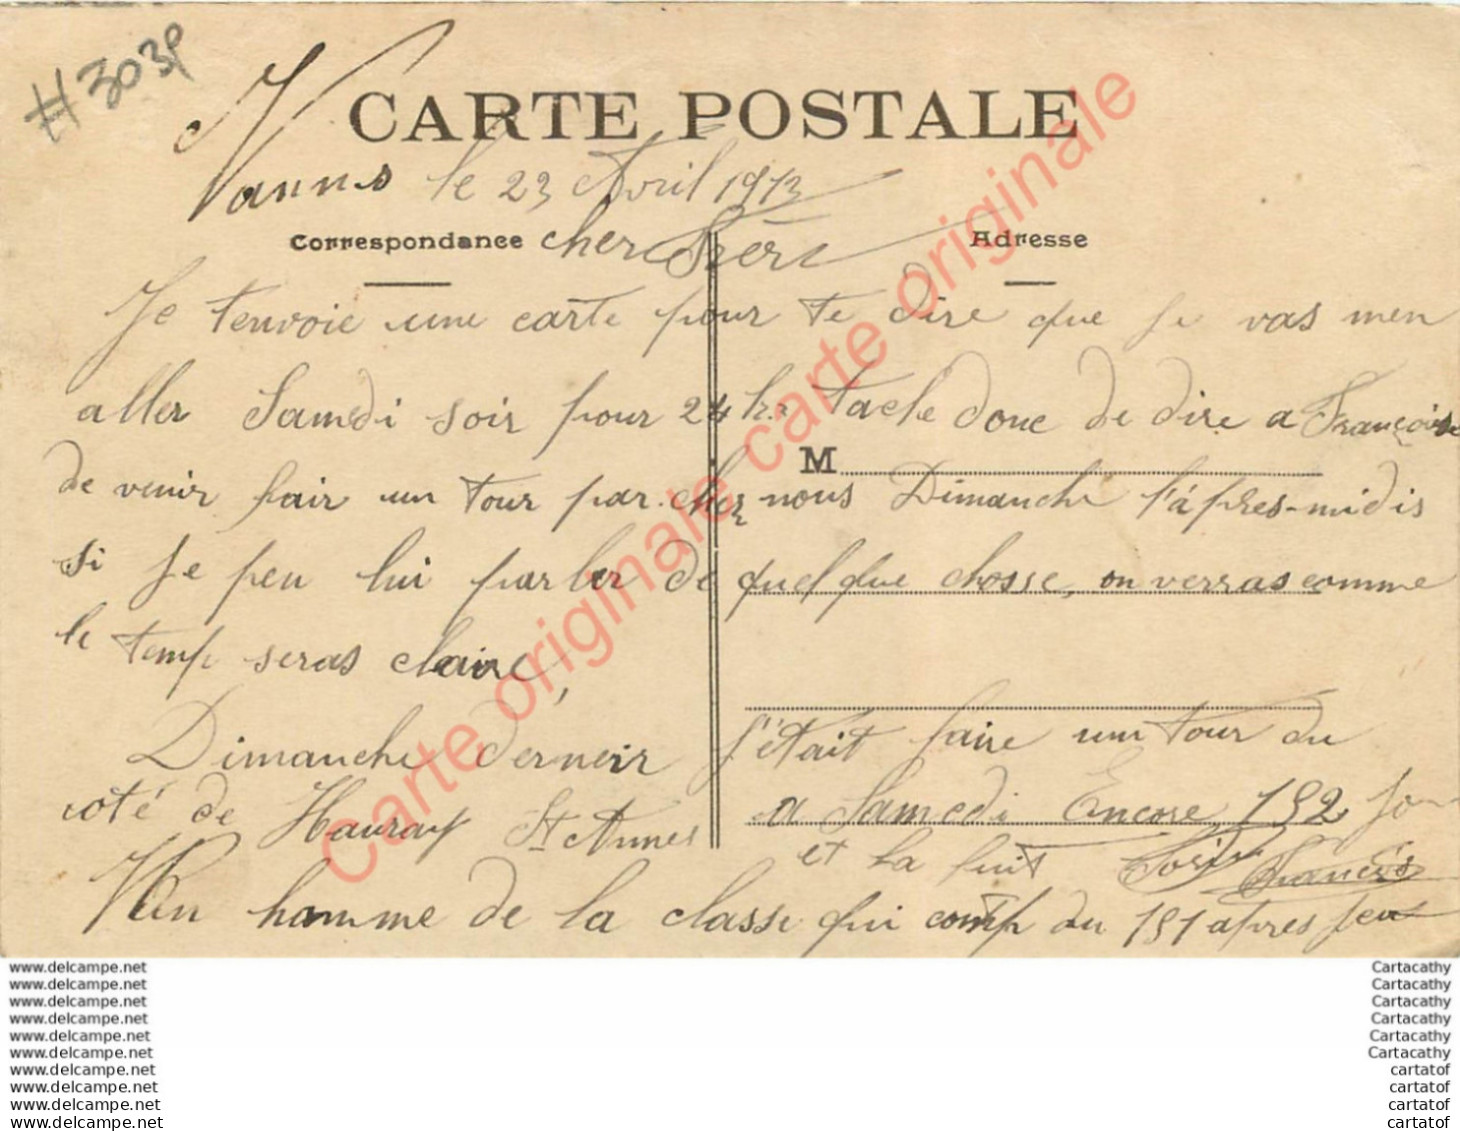 #303P
CARTE POSTALE
Vannes le 23 Avril 1913
Correspondance cher Frère Adresse
Je tenvoie une carte pour te dire que je vas men
aller Samedi soir pour 24 hr tache donc de dire a François
de venir fair un tour par chez nous Dimanche l'après-midis
M
si je peu lui parler de quelque chosse, on verras comme
le temp seras claire,
Dimanche dernier j'était faire un tour du
coté de Hauray St Annes a Samedi Encore 192 jour
et la nuit Francois
Un homme de la classe qui comp du 191 apres jeu
Carte originale carte originale carte originale
www.delcampe.net Cartacathy
www.delcampe.net Cartacathy
www.delcampe.net Cartacathy
www.delcampe.net Cartacathy
www.delcampe.net Cartacathy
www.delcampe.net Cartacathy
www.delcampe.net cartatof
www.delcampe.net cartatof
www.delcampe.net cartatof
www.delcampe.net cartatof